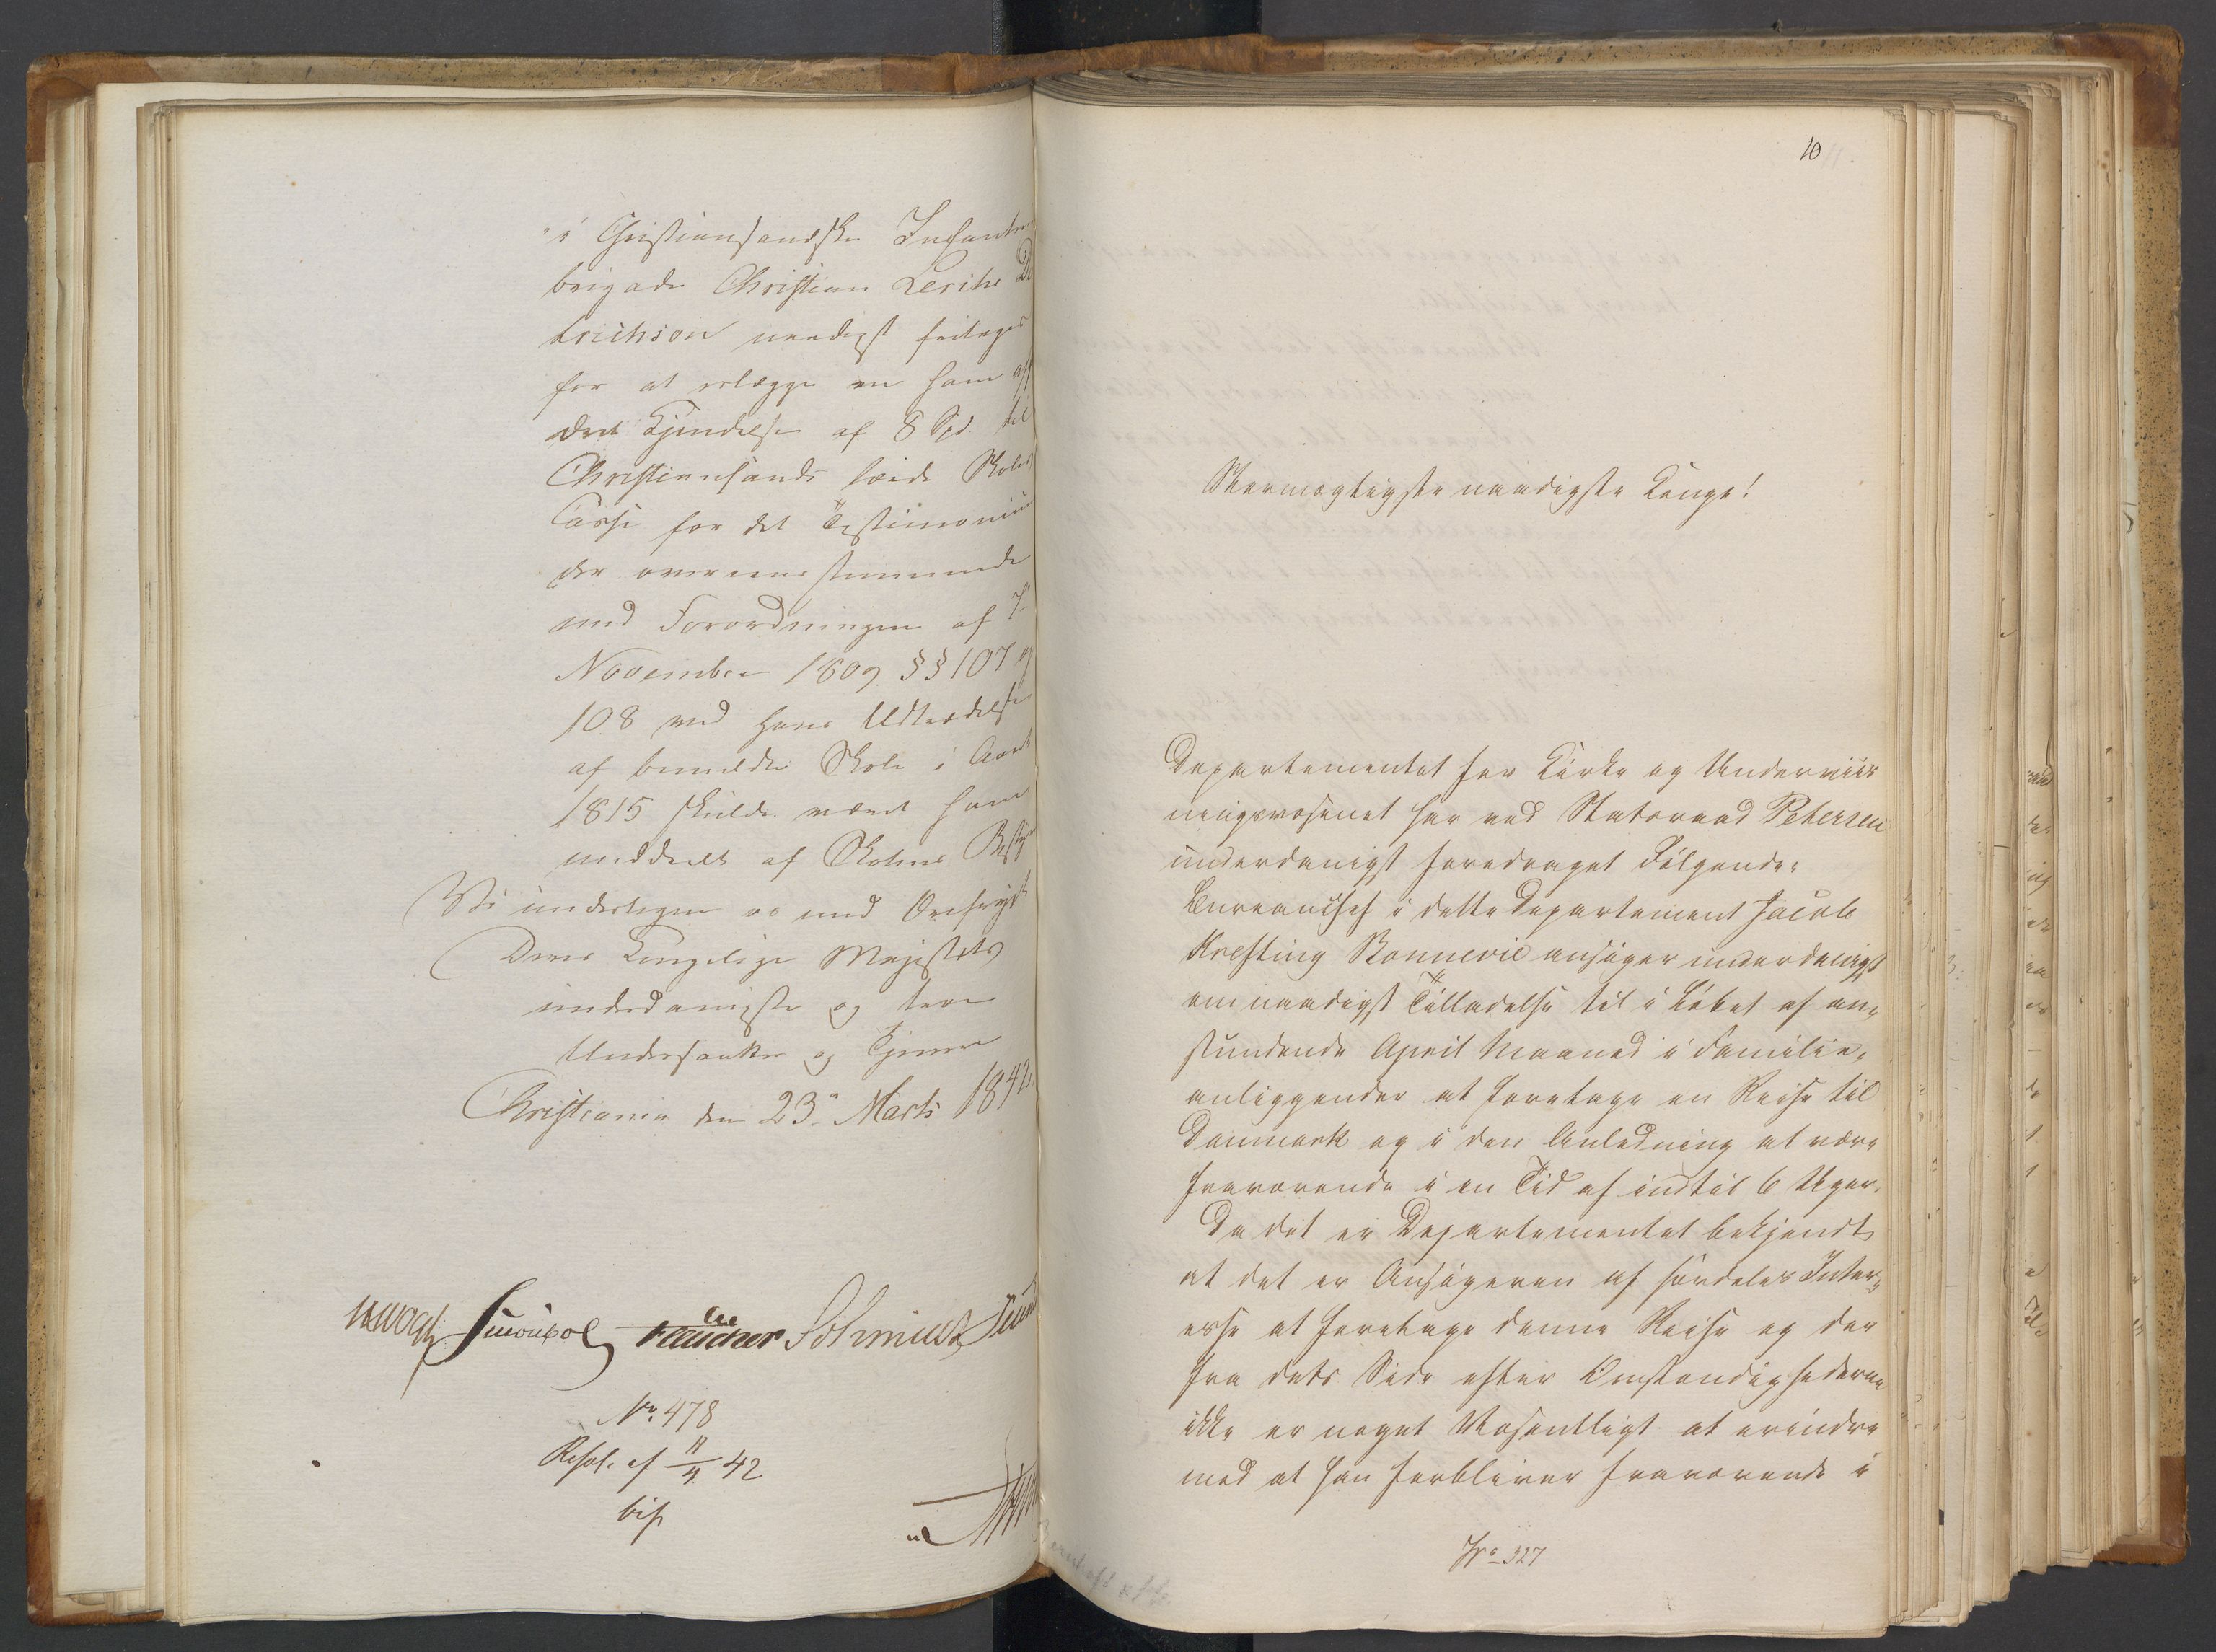 i Christiansandske Infanteri
brigade Christian Lerche
Erichson naadigst fritages
for at erlægge en ham
Kjendelse af 8 Spd. til
Christiansands lærde Skoles
Casse for det Testimonium
der overeensstemmende
med Forordningen af 7
November 1809 §§ 107 og
108 ved hans Udtrædelse
af bemeldte Skole i Aaret
1815 skulde været ham
meddeelt af Skolens
Vi undertegne os med Ærefrygt
Deres Kongelige Majestæts
underdanigste og troe
Undersaatter og Tjenere
Christiania den 23de Marts 1842
Nº. 478
Resol. af 11/4 42
10
Stormægtigste naadigste Konge!
Departementet for Kirke og Underviis
ningsvæsenet har ved Statsraad Petersen
underdanigst foredraget Følgende:
Bureauchef i dette Departement Jacob
Krefting Bonnevie ansøger underdanigst
om naadigst Tilladelse til i Løbet af an-
stundende April Maaned i Familie-
anliggender at foretage en Reise til
Danmark og i den Anledning at være
fraværende i en Tid af indtil 6 Uger.
Da det er Departementet bekjendt,
at det er Ansøgeren af særdeles Inter-
esse at foretage denne Reise og der
fra dets Side efter Omstændighederne
ikke er noget Væsentligt at erindre
med at han forbliver fraværende i
Nº 327